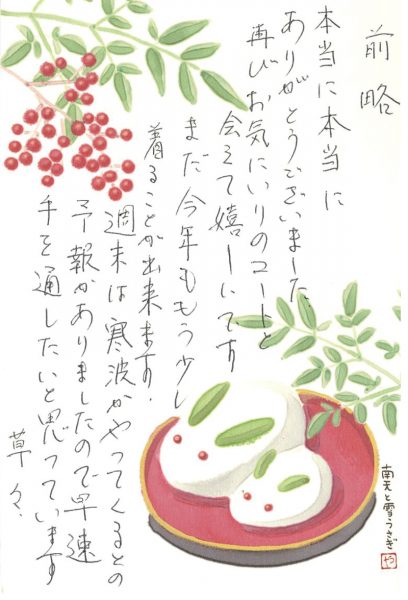 前略
本当に本当に
ありがとうございました。
再びお気にいりのコートと
会えて嬉しいです
まだ今年ももう少し
着ることが出来ます。
週末は寒波がやってくるとの
予報がありましたので早速
手を通したいと思っています
草々、
南天と雪うさぎ
や